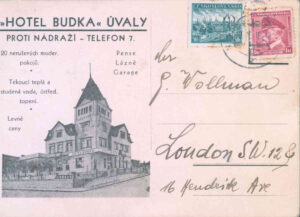 »HOTEL BUDKA« ÚVALY
PROTI NÁDRAŽÍ - TELEFON 7.
20 nerušených moder.
pokojů.
Tekoucí teplá a
studená voda, ústřed.
topení.
Levné
ceny
Pense
Lázně
Garage
Gr.
J. Wollman
London S.W. 12
16 Hendrick Ave